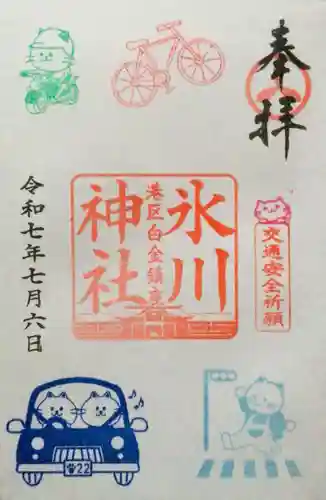 奉拝
氷川
港区白金鎮座
神社
交通安全祈願
令和七年七月六日
22